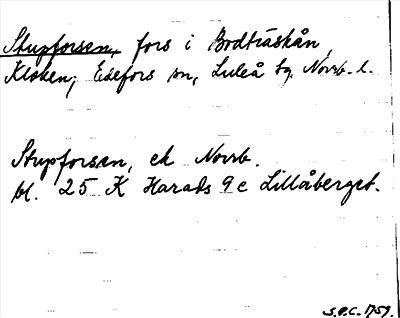 Stupforsen, fors i Bodträskån,
Klöken; Edefors sn, Luleå tg. Norrb. l.
Stupforsen, ek Norrb.
bl. 25 K Harads 9 e Lillåberget.
S.O.C. 1759.